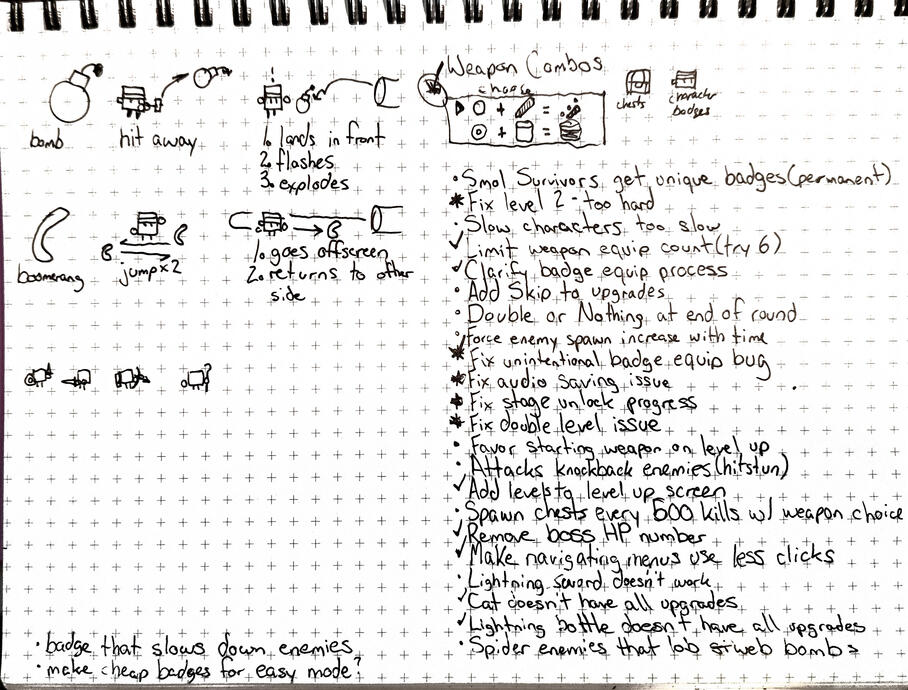 bomb
hit away
1. lands in front
2. flashes
3. explodes
boomerang
jump x2
1. goes offscreen
2. returns to other
side
• badge that slows down enemies
• make cheap badges for easy mode?
Weapon Combos
choose
+ =
+ =
chests
character
badges
• Smol Survivors get unique badges (permanent)
* Fix level 2 - too hard
• Slow characters too slow
✓ Limit weapon equip count (try 6)
✓ Clarify badge equip process
• Add Skip to upgrades
• Double or Nothing at end of round
✓ Force enemy spawn increase with time
* Fix unintentional badge equip bug
* Fix audio saving issue
* Fix stage unlock progress
* Fix double level issue
• Favor starting weapon on level up
• Attacks knockback enemies (hitstun)
✓ Add levels to level up screen
• Spawn chests every 500 kills w/ weapon choice
✓ Remove boss HP number
✓ Make navigating menus use less clicks
• Lightning sword doesn't work
✓ Cat doesn't have all upgrades
✓ Lightning bottle doesn't have all upgrades
• Spider enemies that lob web bombs